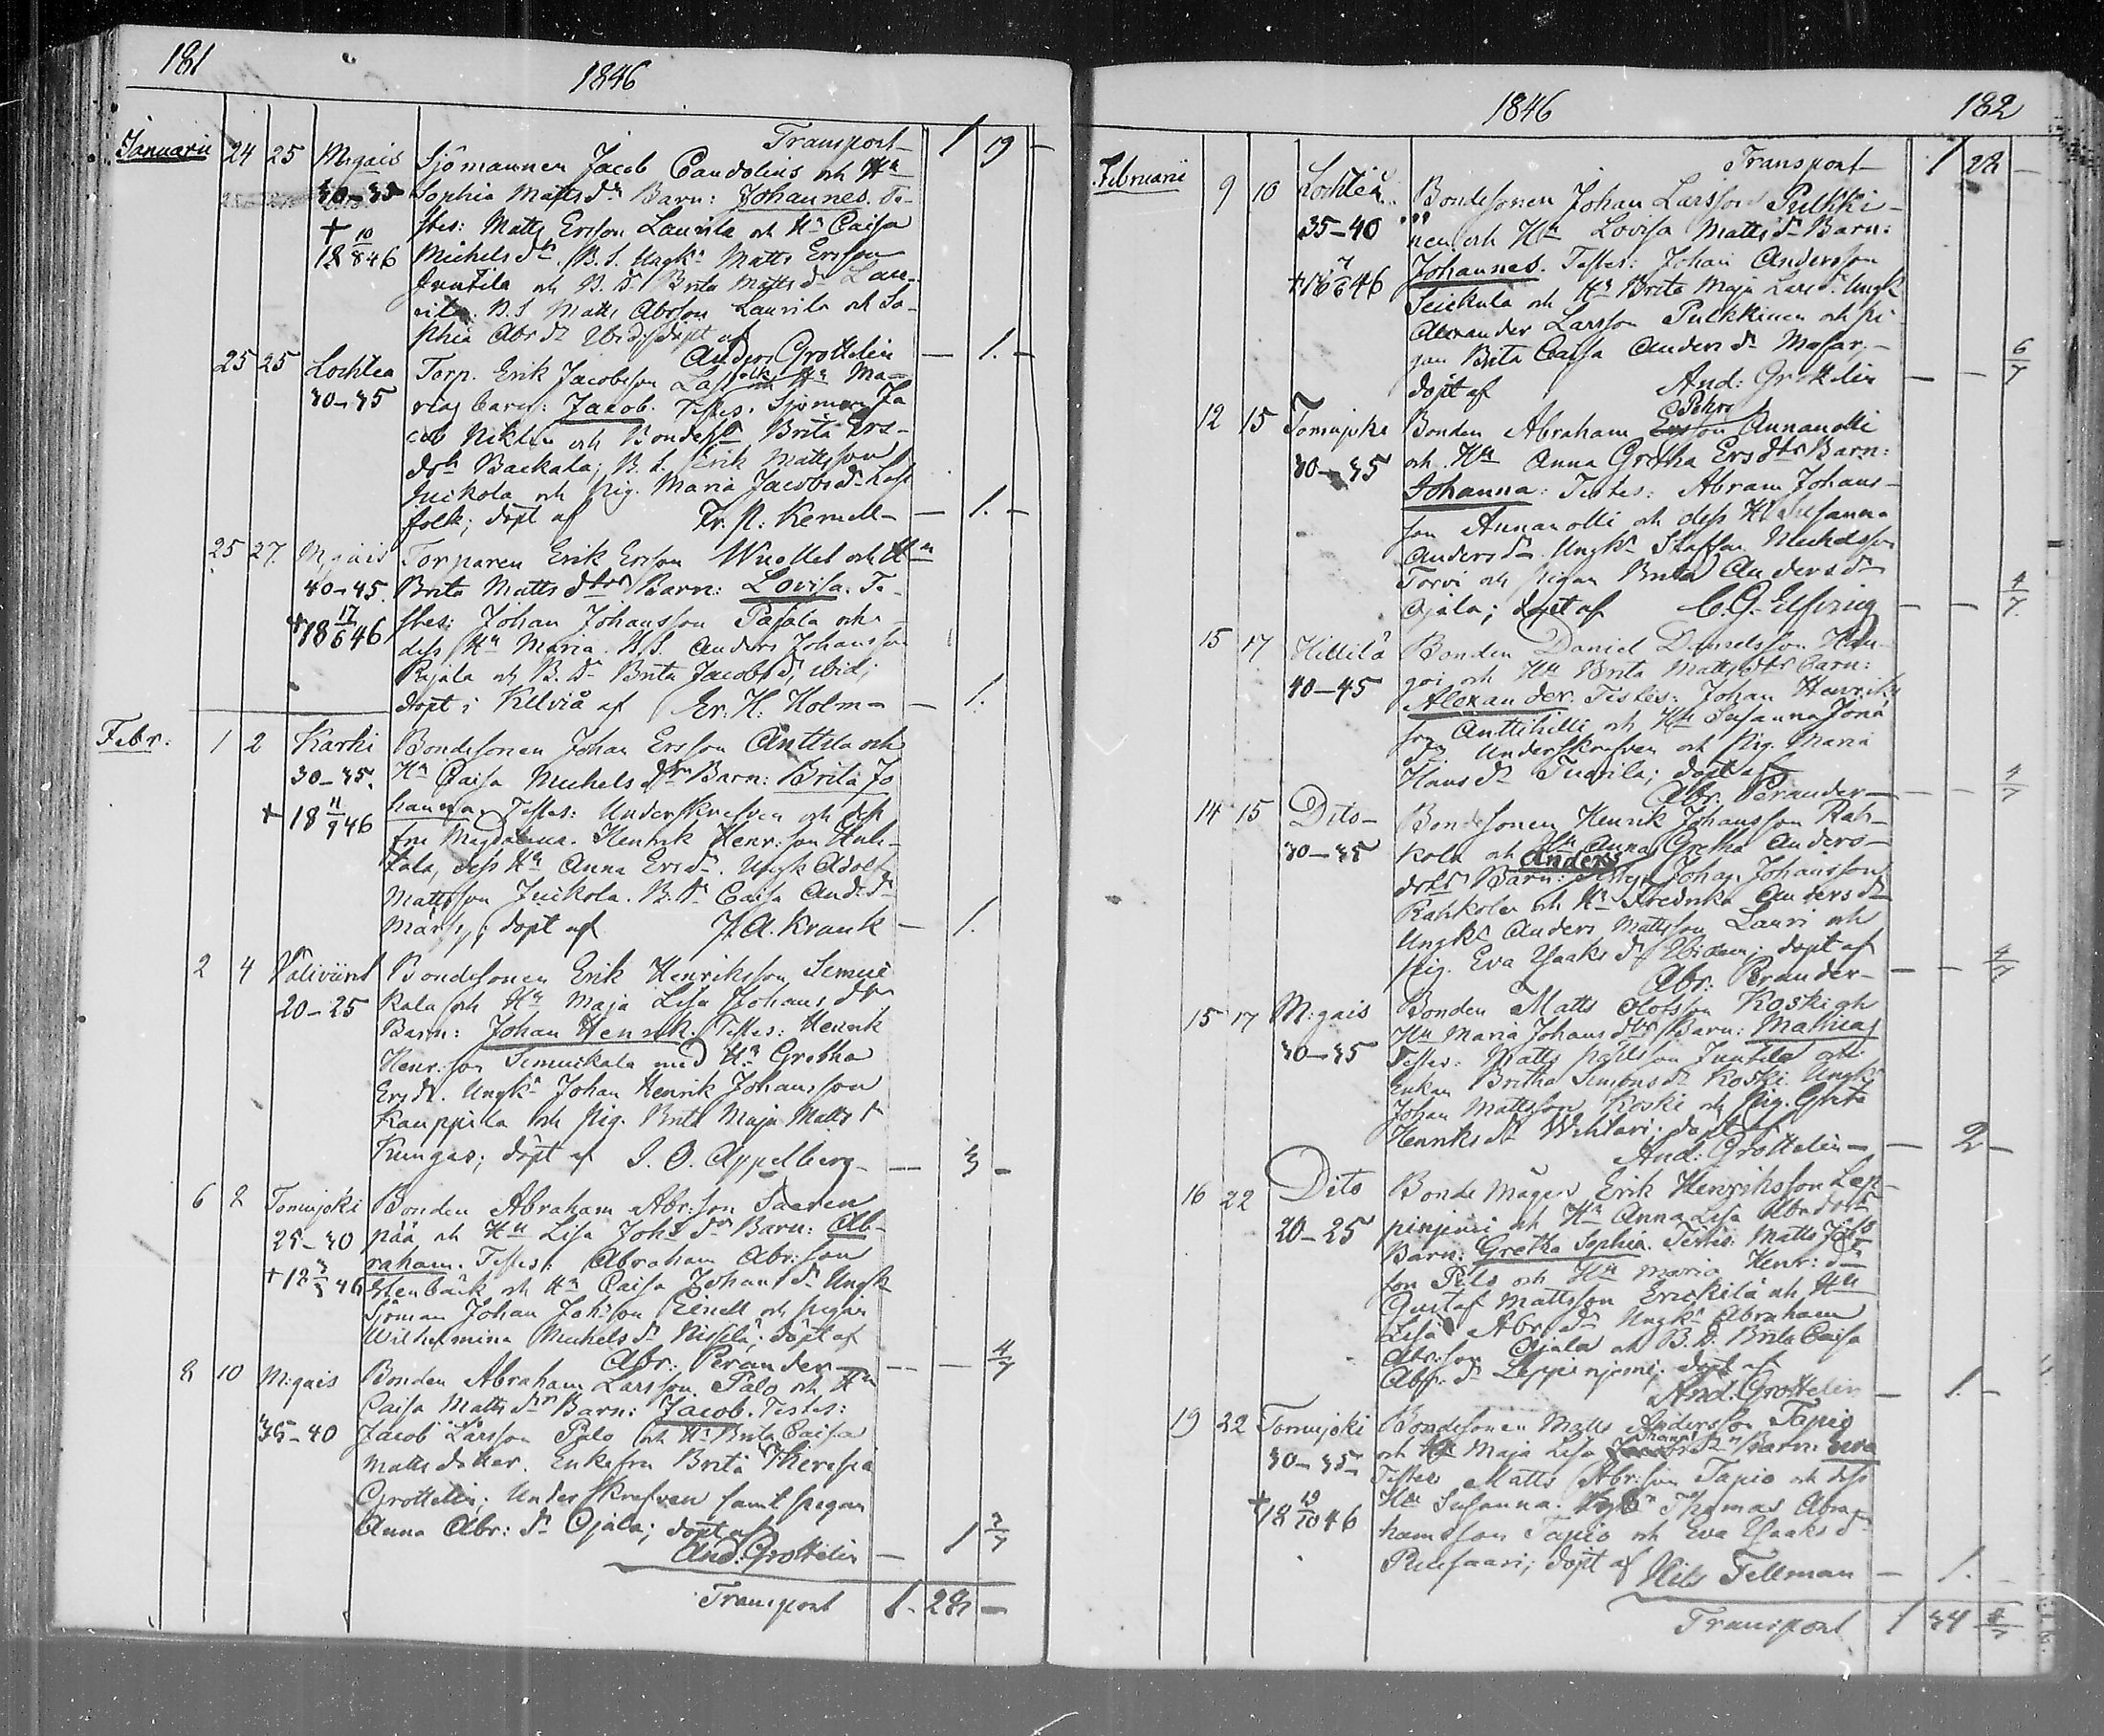 181
1846
Transport 1 19 —
Januarii 24 25 M:gais Sjömannen Jacob Candolins och Hu
30–35 Sophia Matts dr Barn: Johannes. Te-
stes: Matts Ersson Laurila och Hu Caisa
† 18 10/8 46 Michels dr. B. S. Ungk. Matts Ersson
Juntila och B. dr Brita Matts dr Lau-
rila. B. S. Matts Abrsson Laurila och So-
phia Abr dr Ibid; döpt af
Anders Grottelin — 1. —
25 25 Lochtea Torp. Erik Jacobsson Lassfolk Hu Ma-
30–35 rias barn: Jacob. Testes: Sjöman Ja
cob Niklin och Bonde Brita Ers-
dotr Backala; B. S. Erik Mattsson
Juckola och Pig. Maria Jacobs dr Lass
folk; döpt af Fr. P. Kemell — 1. —
25 27. M:gais Torparen Erik Ersson Wuollet och Hu
40–45. Brita Matts dtrs Barn: Lovisa. Te-
† 18 17/6 46 stes: Johan Johansson Pajala och
dess Hu Maria. B. S. Anders Johansson
Rajala och B. dr Brita Jacobs dr, ibid;
döpt i Kelviå af Er. H. Holm — 1.
Febr. 1 2 Karhi Bondesonen Johan Ersson Anttila och
30–35. Hu Caisa Michels dtrs Barn: Brita Jo
† 18 11/9 46 hanna. Testes: Underskrefven och dess
fru Magdalena. Henrik Henr:son Huh-
tala, dess Hu Anna Ers dr. Ungk Adolf
Mattsson Juckola. B. dr Caisa And: dr
döpt af J. A. Krank — 1.
2 4 Väliviirr Bondesonen Erik Henriksson Simui
20–25 kala och Hu Maja Lisa Johans dtrs
Barn: Johan Henrik. Testes: Henrik
Henr:son Simuikala med Hu Gretha
Ers dr. Ungk. Johan Henrik Johansson
Kauppila och Pig. Brita Maja Matts dr
Kungas; döpt af J. O. Appelberg — 3 —
6 8 Tomujoki Bonden Abraham Abr:son Saaren
25–30 pää och Hu Lisa Johs dtr Barn: Ab-
† 18 3/3 46 raham. Testes: Abraham Abr:son
Stenbäck och Hu Caisa Johans dr Ungk
Sjöman Johan Johsson och pigan
Wilhelmina Michels dr Nissilä; döpt af
Abr: Perander — — 4/7
8 10 M:gais Bonden Abraham Larsson Palo och Hu
Caisa Matts dtrs Barn: Jacob. Testes:
35–40 Jacob Larsson Palo och Hu Brita Caisa
Matts dotter. Enkefru Brita Theresia
Grottelin; Underskrefven samt pigan
Anna Abr: dr Ojala; döpt af
And: Grottelin — 1 3/7
Transport 1. 28 —
1846
182
Transport 1 28 —
Februarii 9 10 Lochteå Bondesonen Johan Larsson Pulkki-
35–40 nen och Hu Lovisa Matts dr Barn:
† 16 7/6 46 Johannes. Testes: Johan Andersson
Seikula och Hu Brita Maja Lars dr. Ungk
Alexander Larsson Pulkkinen och pi-
gan Brita Caisa Anders dr
döpt af And: Grottelin — — 6/7
12 15 Tomujoki Bonden Abraham Ersson Pehrs Annanolli
30–35 och Hu Anna Gretha Ers dtrs Barn:
Johanna: Testes: Abram Johans-
son Annanolli och dess Hu Susanna
Anders dr. Ungk. Staffan Michelsson
Torvi och pigan Brita Anders dr
Ojala; döpt af C. G. Elfving — — 4/7
15 17 Hillilä Bonden Daniel Danielsson Han-
40–45 goi och Hu Brita Matts dtrs Barn:
Alexander. Testes: Johan Henriks
son Anttihilli och Hu Susanna Jona
dr Underskrefven och Pig. Maria
Hans dr Tuorila; döpt af
Abr. Perander — — 4/7
14 15 Dito — Bondesonen Henrik Johansson Rah-
30–35 kola och Hu Anna Gretha Anders-
dotrs Barn: Anders Testes Johan Johansson
Rahkola och Hu Fredrika Anders dr
Ungk. Anders Mattsson Lauri och
Pig. Eva Isaks dr Ibidem; döpt af
Abr: Perander — — 4/7
15 17 M:gais Bonden Matts Olofsson Koski och
30–35 Hu Maria Johans dtrs Barn: Mathias
Testes: Matts Juntila och
Enkan Britha Simons dr Koski. Ungk.
Johan Mattsson Koski och Pig. Greta
Henriks dr döpt af
And: Grottelin — 2 —
16 22 Dito Bonde mågen Erik Henriksson Lep-
20–25 pinjemi och Hu Anna Lisa Abr dotrs
Barn: Gretha Sophia. Testes: Matts Jöss
son Palo och Hu Maria Henr: dr
Gustaf Mattsson Erickilä och Hu
Lisa Abr dr Ungk. Abraham
Abr:son Ojala och B. D. Brita Caisa
Abr: dr Leppinjemi; döpt af
And. Grottelin — 1. —
19 22 Tomujoki Bondesonen Matts Andersson Tapio
30–35 och Hu Maja Lisa Johans dtrs Barn: Eva
Testes Matts Abr:son Tapio och dess
† 18 19/10 46 Hu Susanna. Ungk. Thomas Abra-
hamsson Tapio och Eva Isaks dr
döpt af Nils Fellman — 1. —
Transport 1 34 4/7